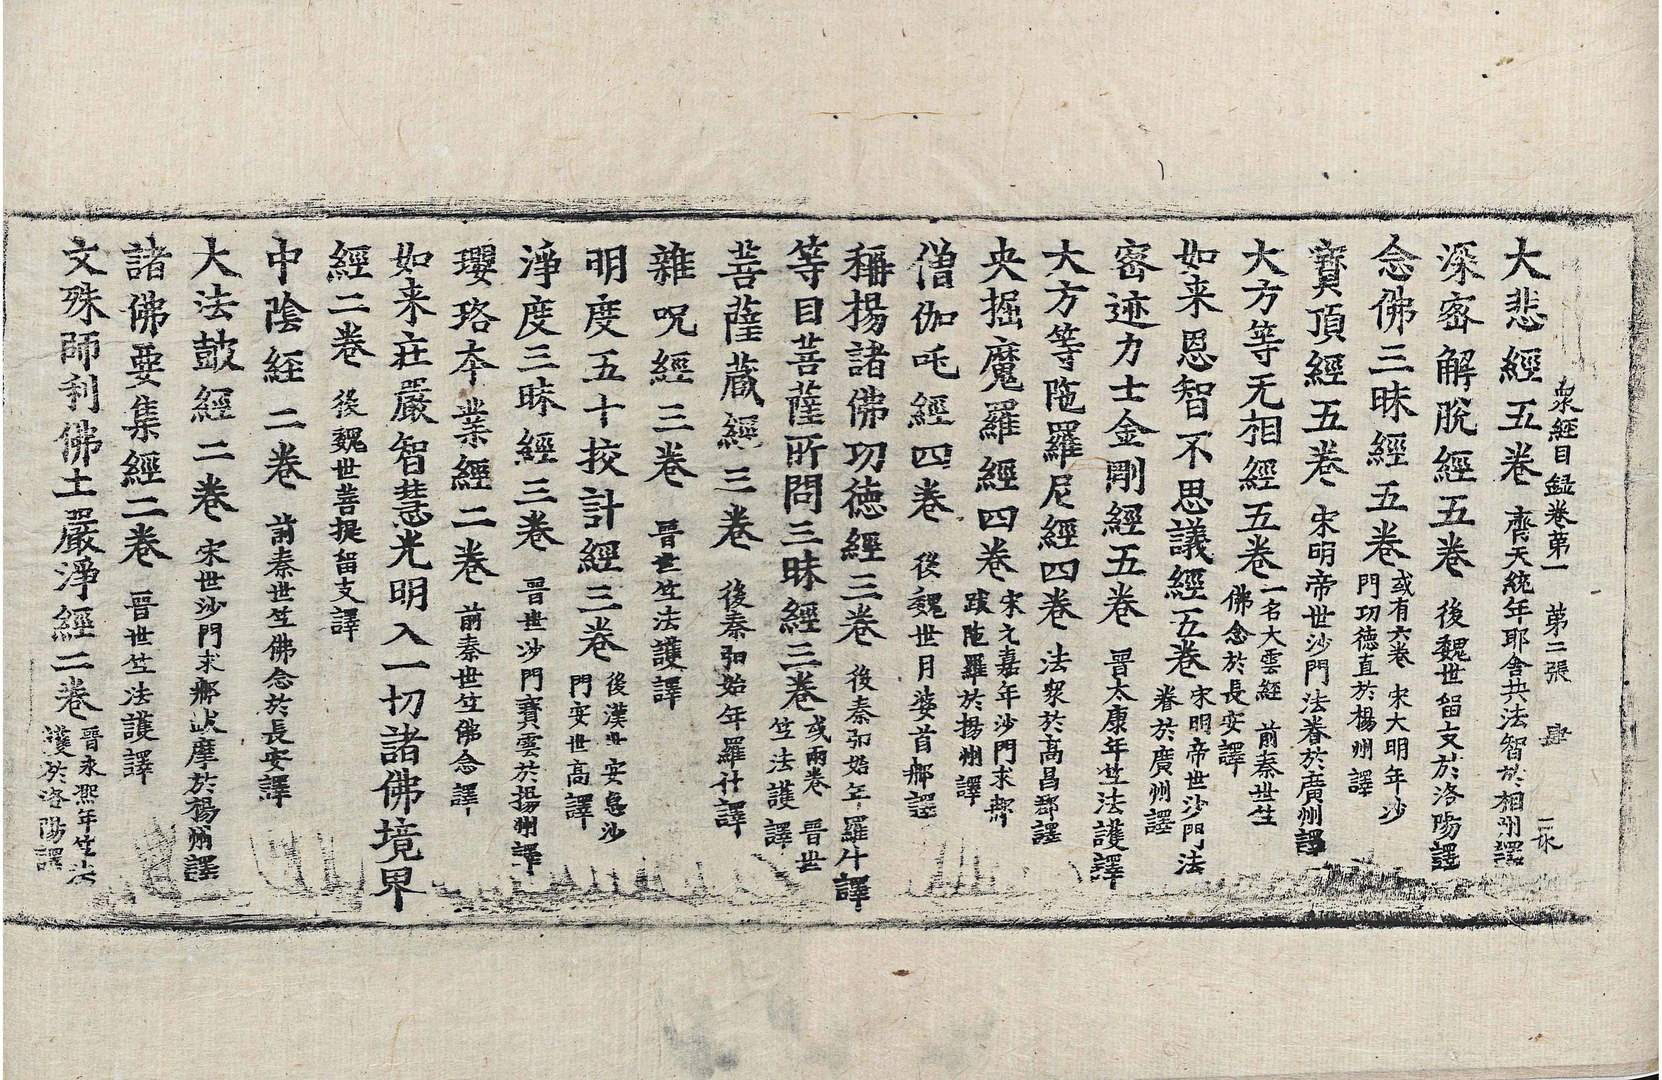 衆經目録卷苐一 苐二張 肆 二水
大悲經五卷 齊天統年耶舍共法智於相州譯
深密解脫經五卷 後魏世留支於洛陽譯
念佛三昧經五卷 或有六卷 宋大明年沙
門功德直於楊州譯
寶頂經五卷 宋明帝世沙門法眷於廣州譯
大方等无相經五卷 一名大雲經 前秦世竺
佛念於長安譯
如来恩智不思議經五卷 宋明帝世沙門法
眷於廣州譯
密迹力士金剛經五卷 晋太康年竺法護譯
大方等陁羅尼經四卷 法衆於高昌郡譯
央掘魔羅經四卷 宋元嘉年沙門求那
跋陁羅於揚州譯
僧伽吒經四卷 後魏世月婆首那譯
稱揚諸佛功德經三卷 後秦弘始年羅什譯
等目菩薩所問三昧經三卷 或兩卷 晋世
竺法護譯
菩薩藏經三卷 後秦弘始年羅什譯
雜呪經三卷 晋世竺法護譯
明度五十挍計經三卷 後漢世安息沙
門安世高譯
淨度三昧經三卷 晋世沙門寶雲於揚州譯
瓔珞本業經二卷 前秦世竺佛念譯
如来莊嚴智慧光明入一切諸佛境界
經二卷 後魏世菩提留支譯
中陰經二卷 前秦世竺佛念於長安譯
大法鼓經二卷 宋世沙門求那跋摩於楊州譯
諸佛要集經二卷 晋世竺法護譯
文殊師利佛土嚴淨經二卷 晋永熙年竺法
護於洛陽譯